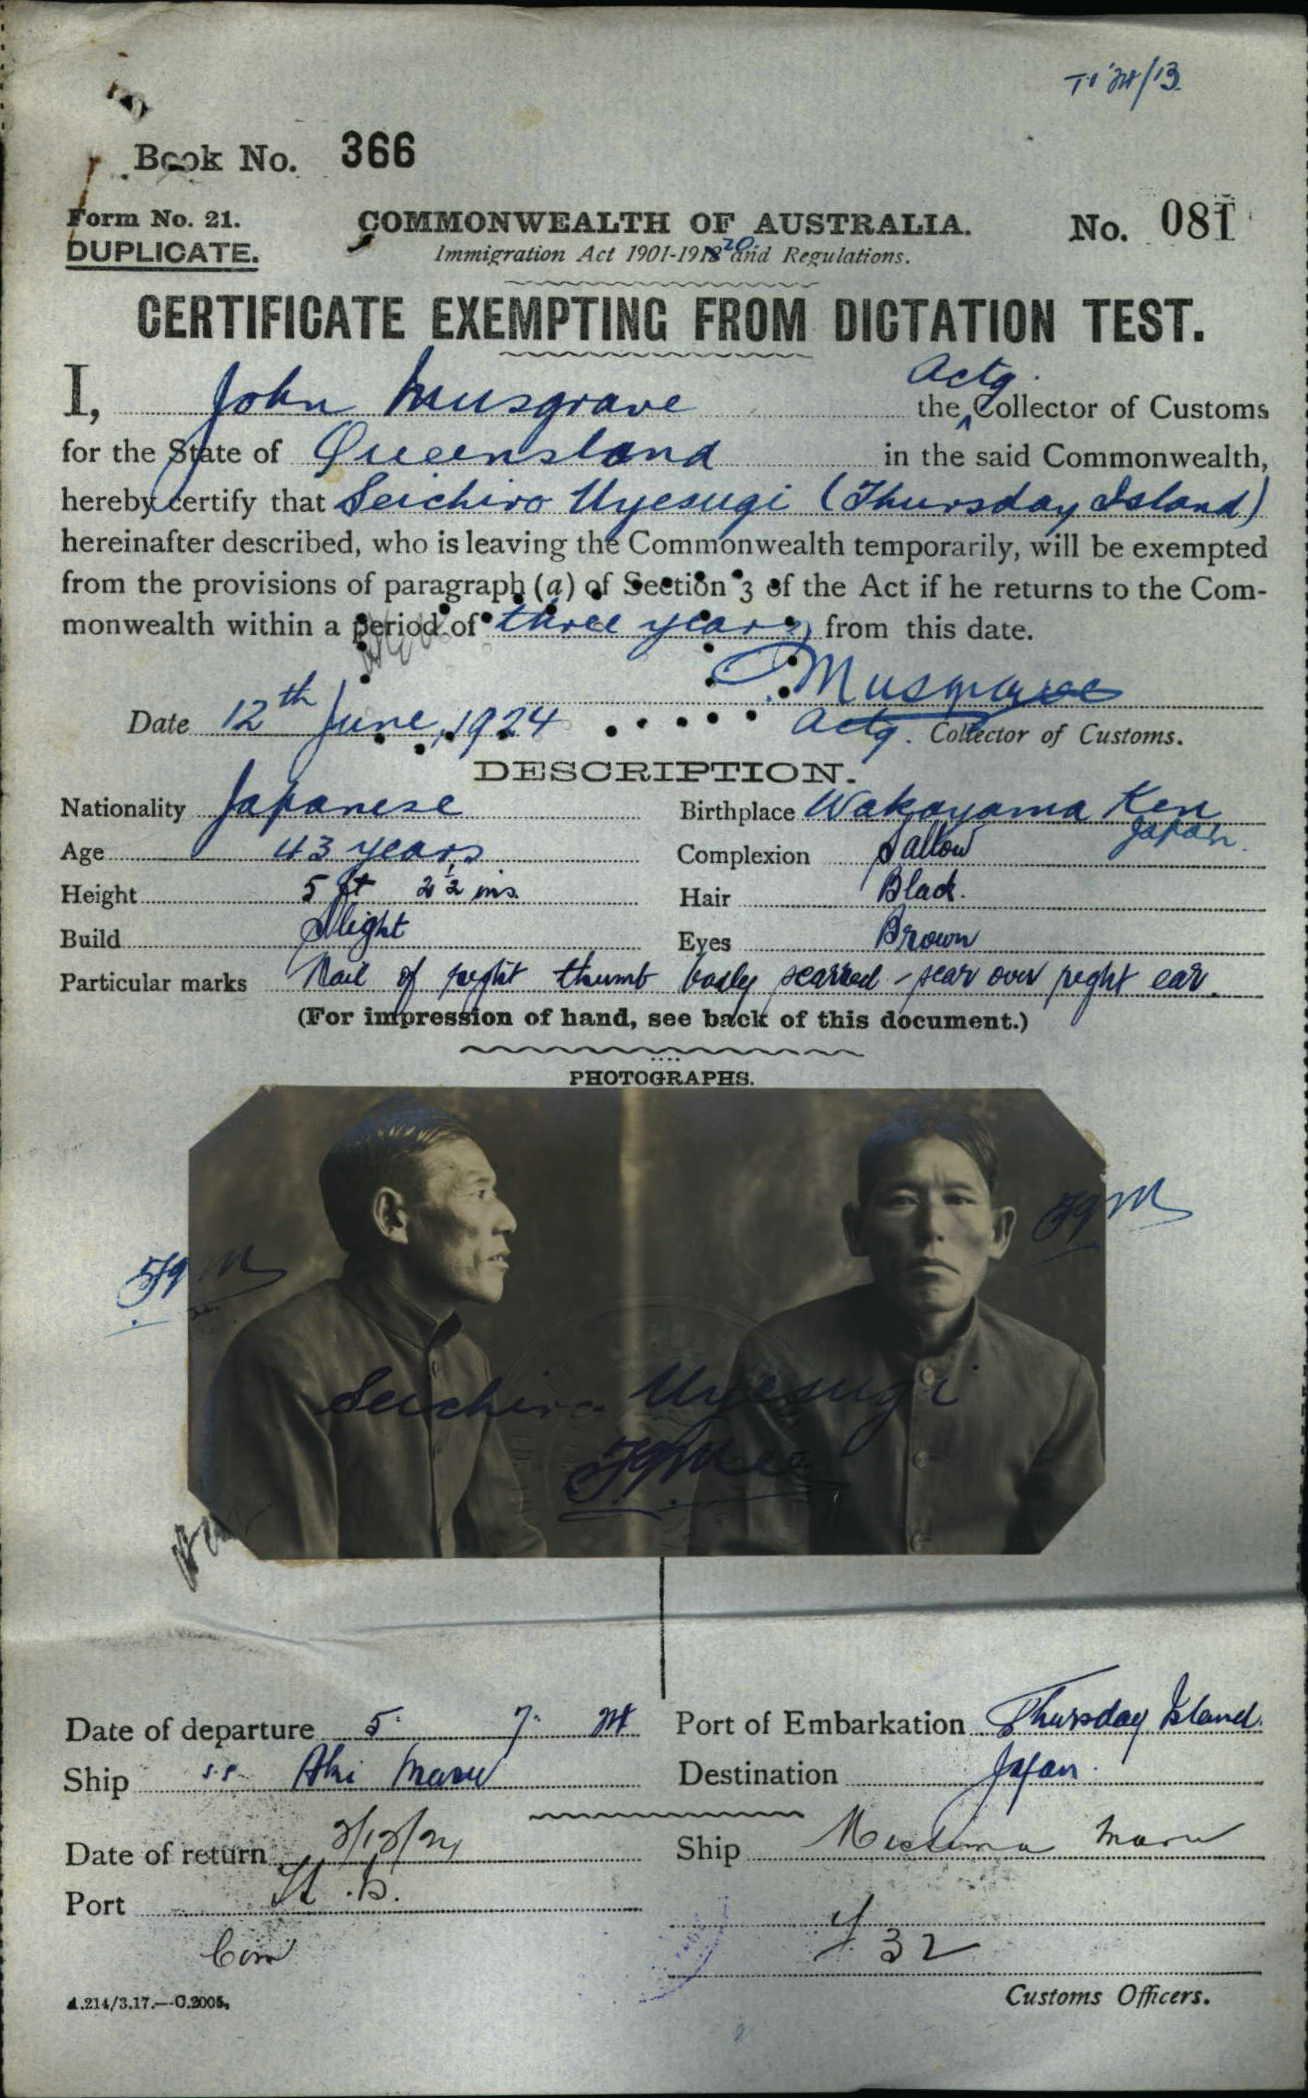 TI 24/13
Book No. 366
Form No. 21.
DUPLICATE.
COMMONWEALTH OF AUSTRALIA.
No. 081
Immigration Act 1901-1920 and Regulations.
CERTIFICATE EXEMPTING FROM DICTATION TEST.
I, John Musgrave the Actg. Collector of Customs
for the State of Queensland in the said Commonwealth,
hereby certify that Seichiro Uyesugi (Thursday Island)
hereinafter described, who is leaving the Commonwealth temporarily, will be exempted
from the provisions of paragraph (a) of Section 3 of the Act if he returns to the Com-
monwealth within a period of three years from this date.
Musgrave
Date 12th June, 1924 Actg. Collector of Customs.
DESCRIPTION.
Nationality Japanese Birthplace Wakayama Ken Japan.
Age 43 years Complexion Sallow
Height 5 ft 2½ ins. Hair Black.
Build Slight Eyes Brown
Particular marks Nail of right thumb badly scarred - scar over right ear.
(For impression of hand, see back of this document.)
PHOTOGRAPHS.
Seichiro Uyesugi
Date of departure 5. 7. 24 Port of Embarkation Thursday Island.
Ship s.s. Aki Maru Destination Japan.
Date of return 3/12/24 Ship Mishima Maru
Port Th. Is.
32
Customs Officers.
A.214/3.17.—C.2005.